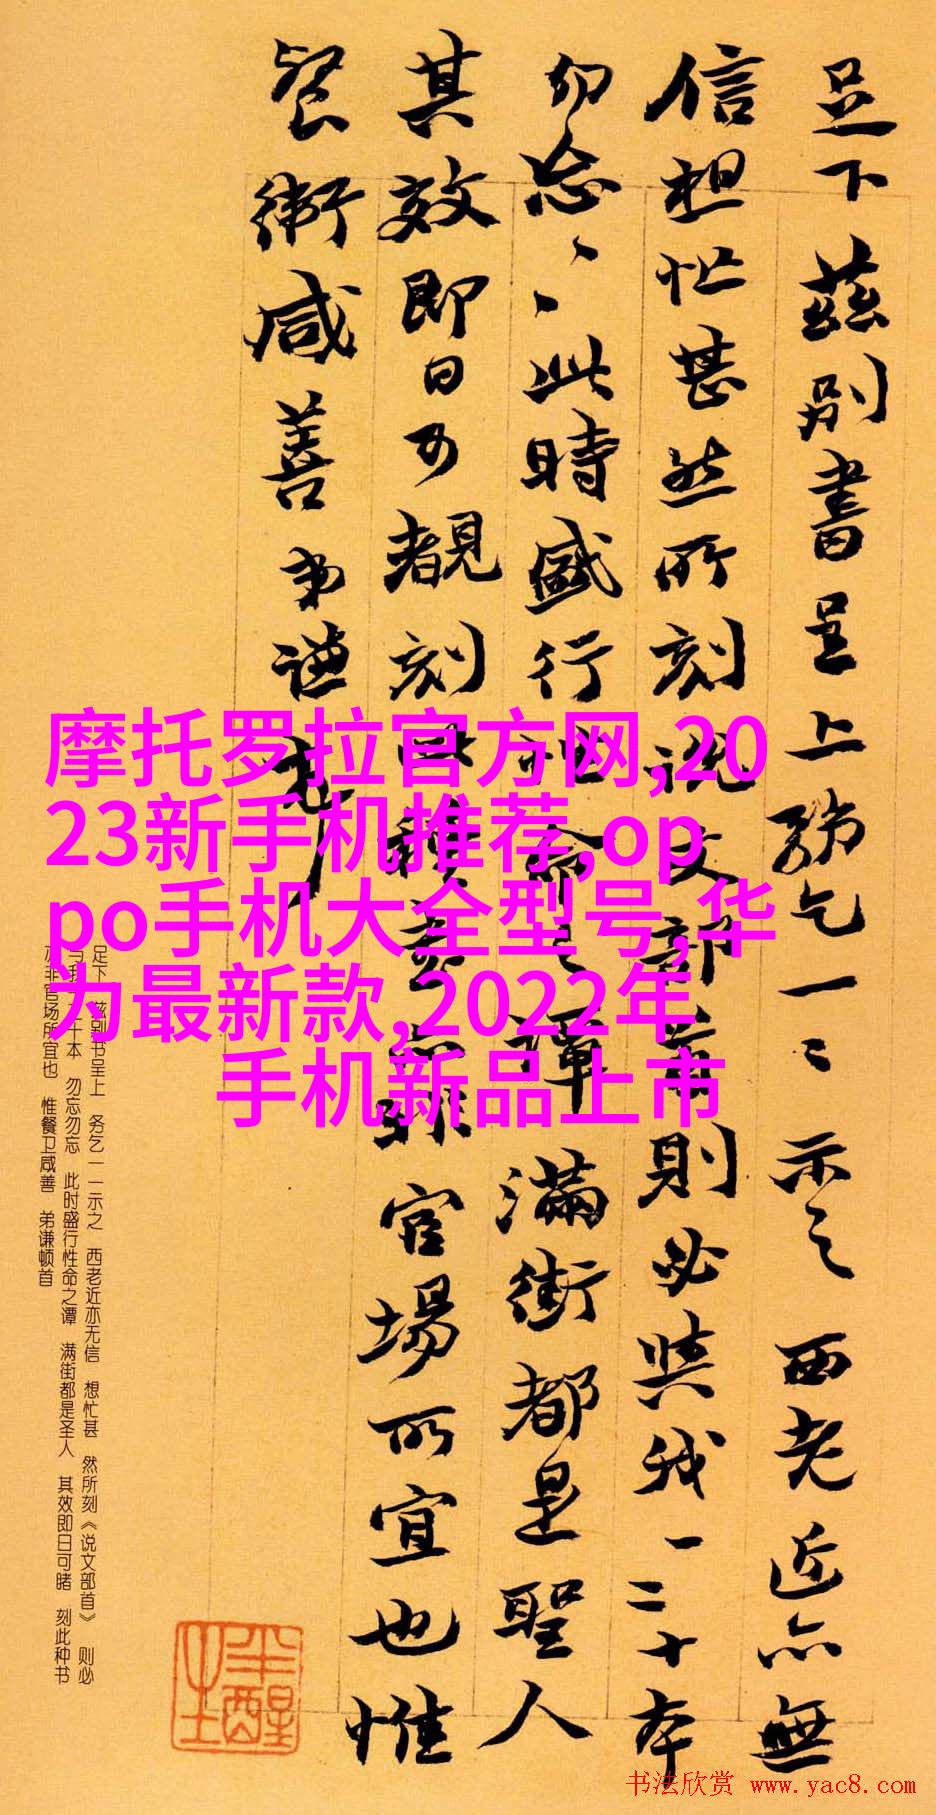 足下茲别書呈上務乞一〻示之西老近亦無
信想忙甚然所刻説文部首則必與我一二十本
勿忘〻〻此時盛行性命之譚滿街都是聖人
其效即日可覩刻此種書亦非官場所宜也惟
餐衛咸善弟謙頓首
摩托罗拉官方网,20
23新手机推荐,op
po手机大全型号,华
为最新款,2022年
手机新品上市
足下 兹别书呈上 务乞一一示之 西老近亦无信 想忙甚 然所刻《说文部首》 则必
与我一二十本 勿忘勿忘 此时盛行性命之谭 满街都是圣人 其效即日可睹 刻此种书
亦非官场所宜也 惟餐卫咸善 弟谦顿首
书法欣赏 www.yac8.com